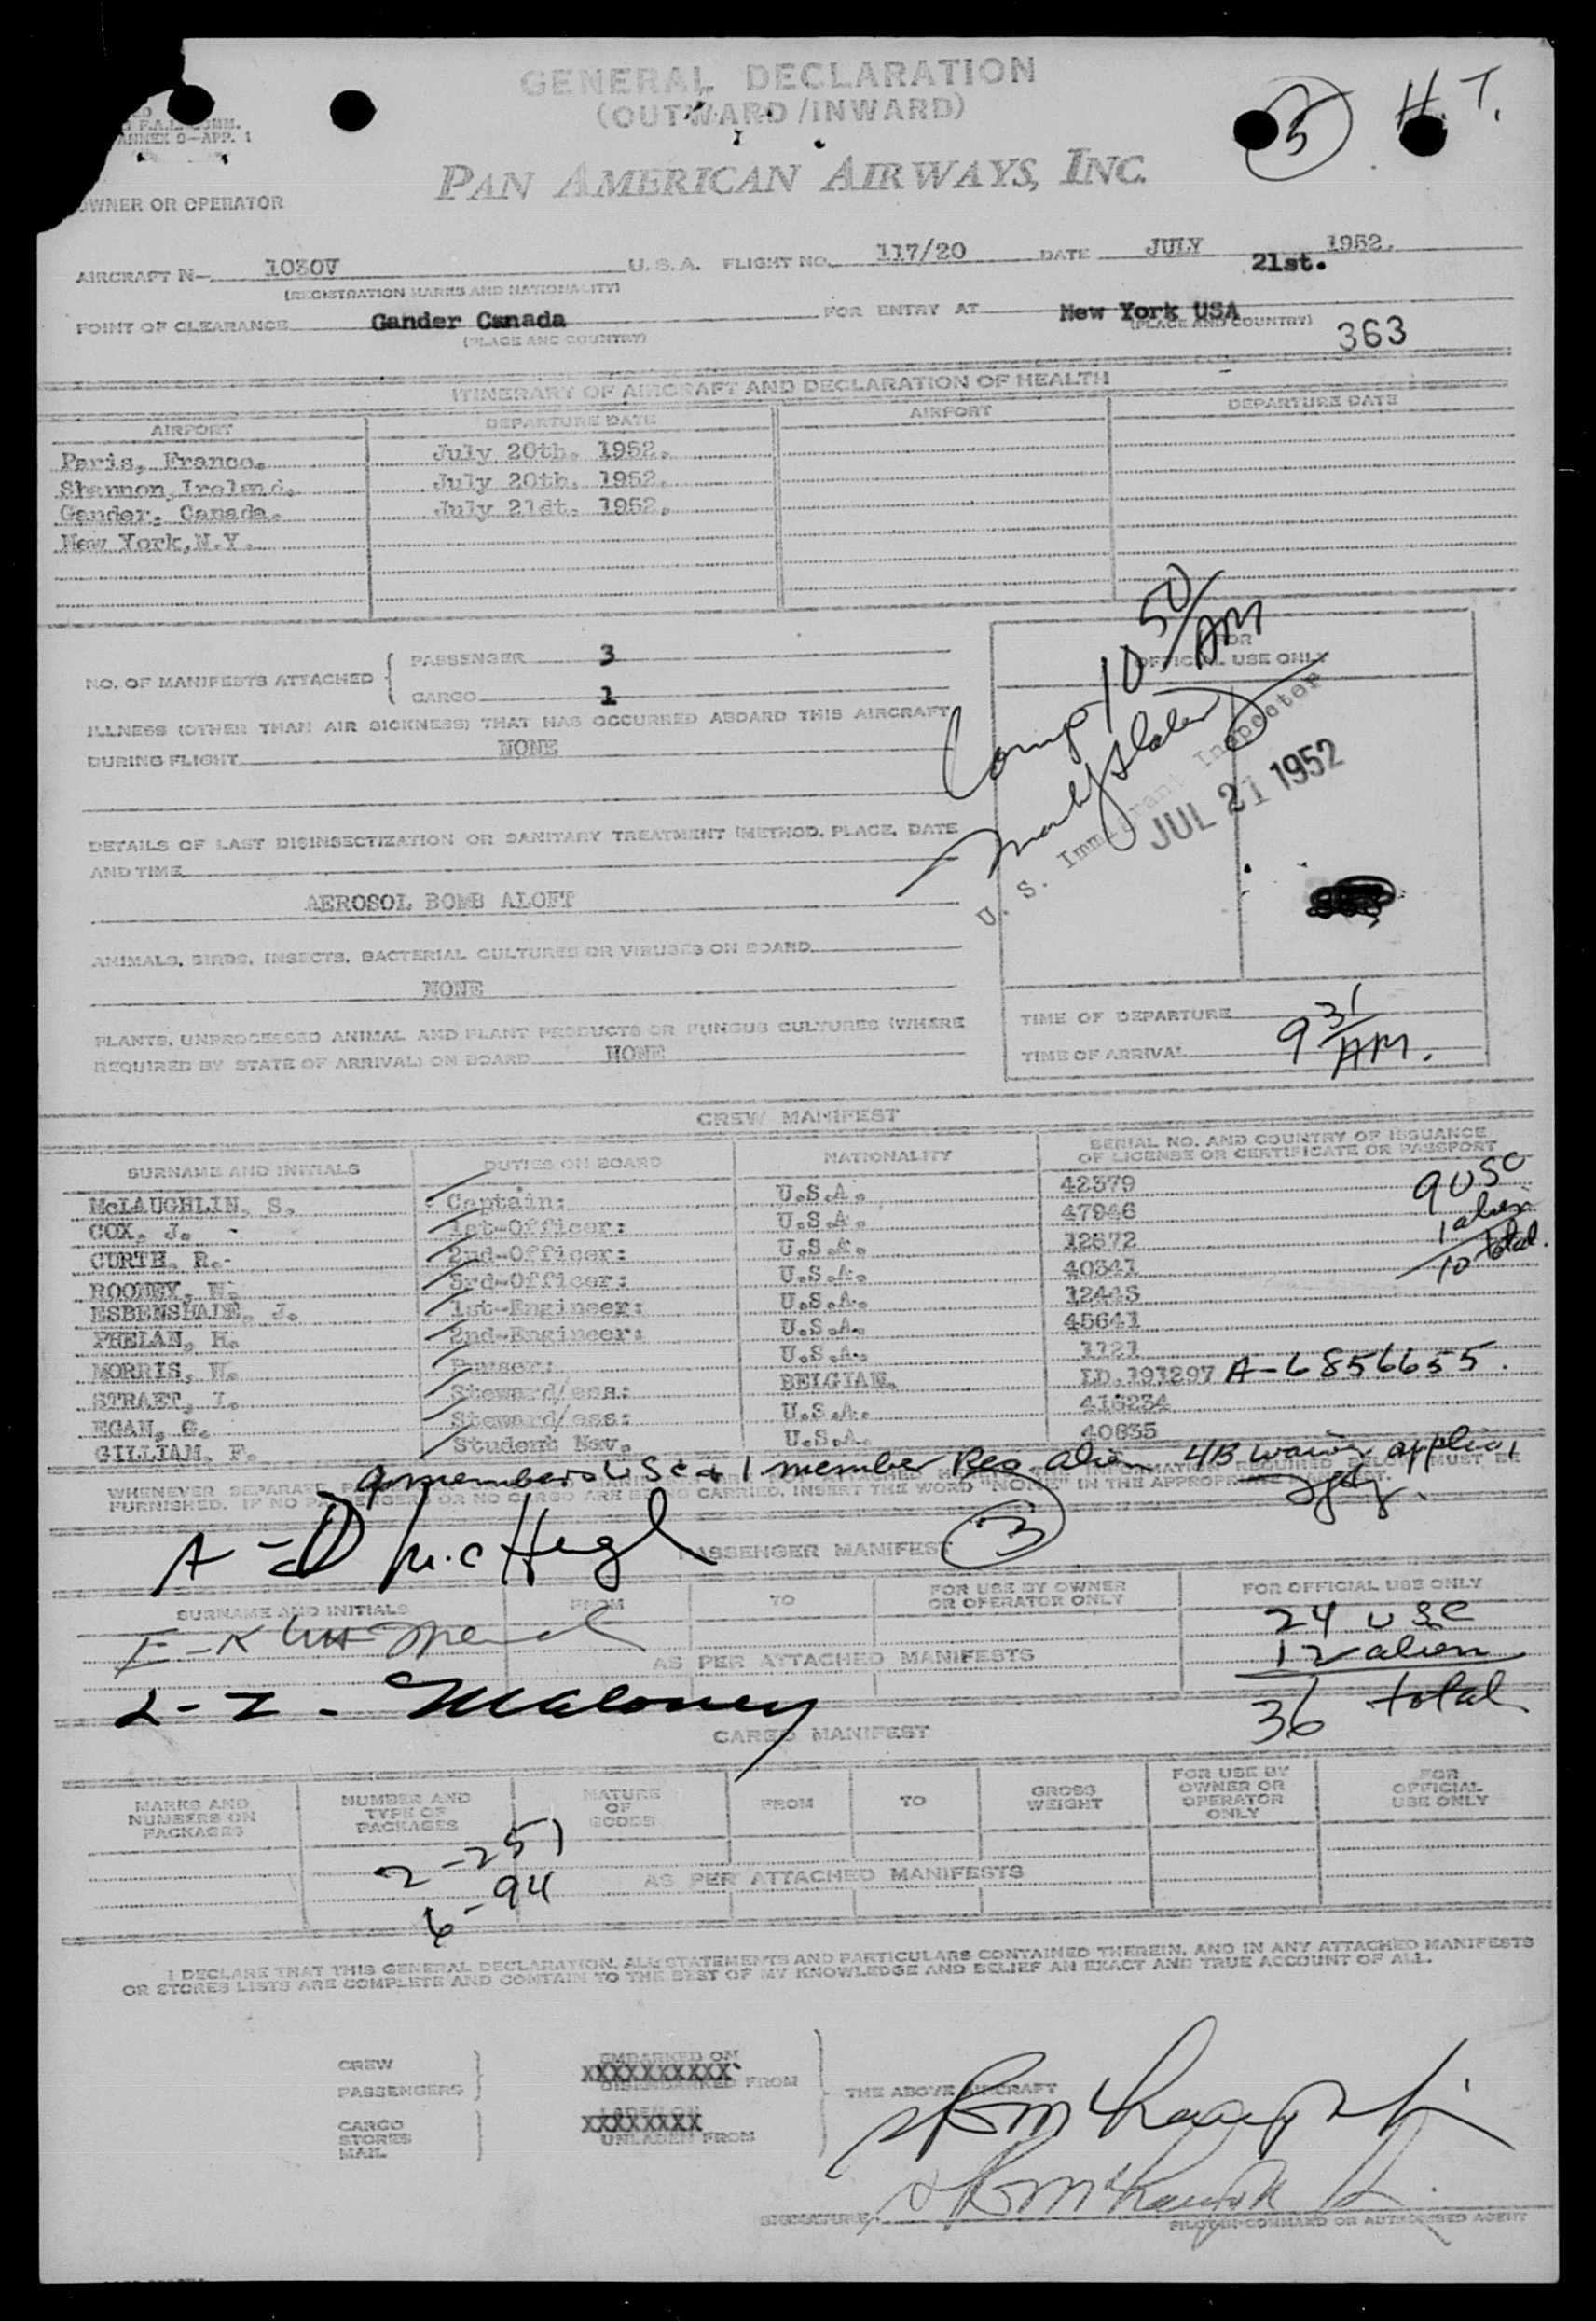 GENERAL DECLARATION
(OUTWARD/INWARD)
5
H. T.
ANNEX 9—APP. 1
PAN AMERICAN AIRWAYS, INC.
OWNER OR OPERATOR
AIRCRAFT N— 1030V U.S.A. FLIGHT NO. 117/20 DATE JULY 21st. 1952.
(REGISTRATION MARKS AND NATIONALITY)
POINT OF CLEARANCE Gander Canada FOR ENTRY AT New York USA
(PLACE AND COUNTRY) (PLACE AND COUNTRY)
363
ITINERARY OF AIRCRAFT AND DECLARATION OF HEALTH
AIRPORT DEPARTURE DATE AIRPORT DEPARTURE DATE
Paris, France. July 20th. 1952.
Shannon, Ireland. July 20th. 1952.
Gander, Canada. July 21st. 1952.
New York, N.Y.
NO. OF MANIFESTS ATTACHED
PASSENGER 3
CARGO 1
FOR
OFFICIAL USE ONLY
Comp 10 50/AM
U. S. Immigrant Inspector
JUL 21 1952
ILLNESS (OTHER THAN AIR SICKNESS) THAT HAS OCCURRED ABOARD THIS AIRCRAFT
DURING FLIGHT NONE
DETAILS OF LAST DISINSECTIZATION OR SANITARY TREATMENT (METHOD, PLACE, DATE
AND TIME
AEROSOL BOMB ALOFT
ANIMALS, BIRDS, INSECTS, BACTERIAL CULTURES OR VIRUSES ON BOARD
NONE
PLANTS, UNPROCESSED ANIMAL AND PLANT PRODUCTS OR FUNGUS CULTURES (WHERE
REQUIRED BY STATE OF ARRIVAL) ON BOARD NONE
TIME OF DEPARTURE
TIME OF ARRIVAL 9 31/AM.
CREW MANIFEST
SURNAME AND INITIALS DUTIES ON BOARD NATIONALITY SERIAL NO. AND COUNTRY OF ISSUANCE
OF LICENSE OR CERTIFICATE OR PASSPORT
McLAUGHLIN, S. Captain: U.S.A. 42579
COX, J. 1st-Officer: U.S.A. 47946
CURTH, R. 2nd-Officer: U.S.A. 12672
ROONEY, W. 3rd-Officer: U.S.A. 40341
ESBENSHADE, J. 1st-Engineer: U.S.A. 12445
PHELAN, H. 2nd-Engineer: U.S.A. 45641
MORRIS, W. Purser: U.S.A. 1121
STRAET, I. Steward/ess: BELGIAN. ID.191297 A-6856655.
EGAN, G. Steward/ess: U.S.A. 416234
GILLIAM, F. Student Nav. U.S.A. 40835
9 USC
1 alien
10 total.
9 members USC & 1 member Reg alien 4B waiver applies
WHENEVER SEPARATE
FURNISHED. IF NO PASSENGERS OR NO CARGO ARE BEING CARRIED, INSERT THE WORD "NONE" IN THE APPROPRIATE
3
PASSENGER MANIFEST
A-D McHugh
SURNAME AND INITIALS FROM TO FOR USE BY OWNER
OR OPERATOR ONLY FOR OFFICIAL USE ONLY
E-K
AS PER ATTACHED MANIFESTS
24 USC
12 alien
36 total
L-Z - Maloney
CARGO MANIFEST
MARKS AND
NUMBERS ON
PACKAGES
NUMBER AND
TYPE OF
PACKAGES
NATURE
OF
GOODS
FROM TO
GROSS
WEIGHT
FOR USE BY
OWNER OR
OPERATOR
ONLY
FOR
OFFICIAL
USE ONLY
2-251
6-94
AS PER ATTACHED MANIFESTS
I DECLARE THAT THIS GENERAL DECLARATION, ALL STATEMENTS AND PARTICULARS CONTAINED THEREIN, AND IN ANY ATTACHED MANIFESTS
OR STORES LISTS ARE COMPLETE AND CONTAIN TO THE BEST OF MY KNOWLEDGE AND BELIEF AN EXACT AND TRUE ACCOUNT OF ALL.
CREW
PASSENGERS
EMBARKED ON
XXXXXXXXXX
DISEMBARKED FROM
THE ABOVE AIRCRAFT
CARGO
STORES
MAIL
LADEN ON
XXXXXXXX
UNLADEN FROM
SIGNATURE
PILOT-IN-COMMAND OR AUTHORISED AGENT